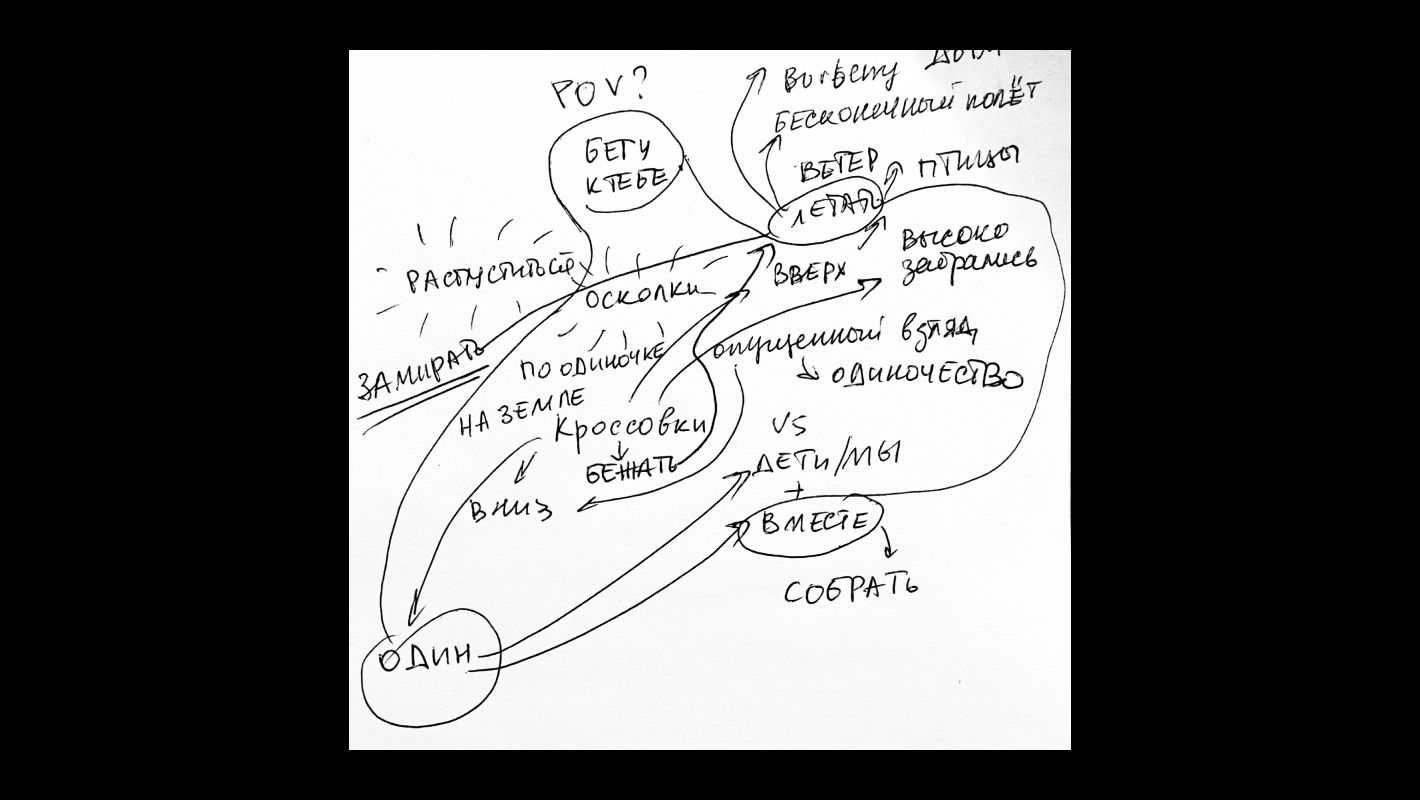 POV?
БЕГУ
К ТЕБЕ
БЕСКОНЕЧНЫЙ ПОЛЁТ
ВЕТЕР
ПТИЦЫ
ЛЕТАТЬ
ВЫСОКО
забрались
ВВЕРХ
РАСПУСТИТЬСЯ
ОСКОЛКИ
ЗАМИРАТЬ
ПО ОДИНОЧКЕ
опущенный взгляд
ОДИНОЧЕСТВО
НА ЗЕМЛЕ
Кроссовки
БЕЖАТЬ
ВНИЗ
VS
ДЕТИ/МЫ
+
ВМЕСТЕ
СОБРАТЬ
ОДИН